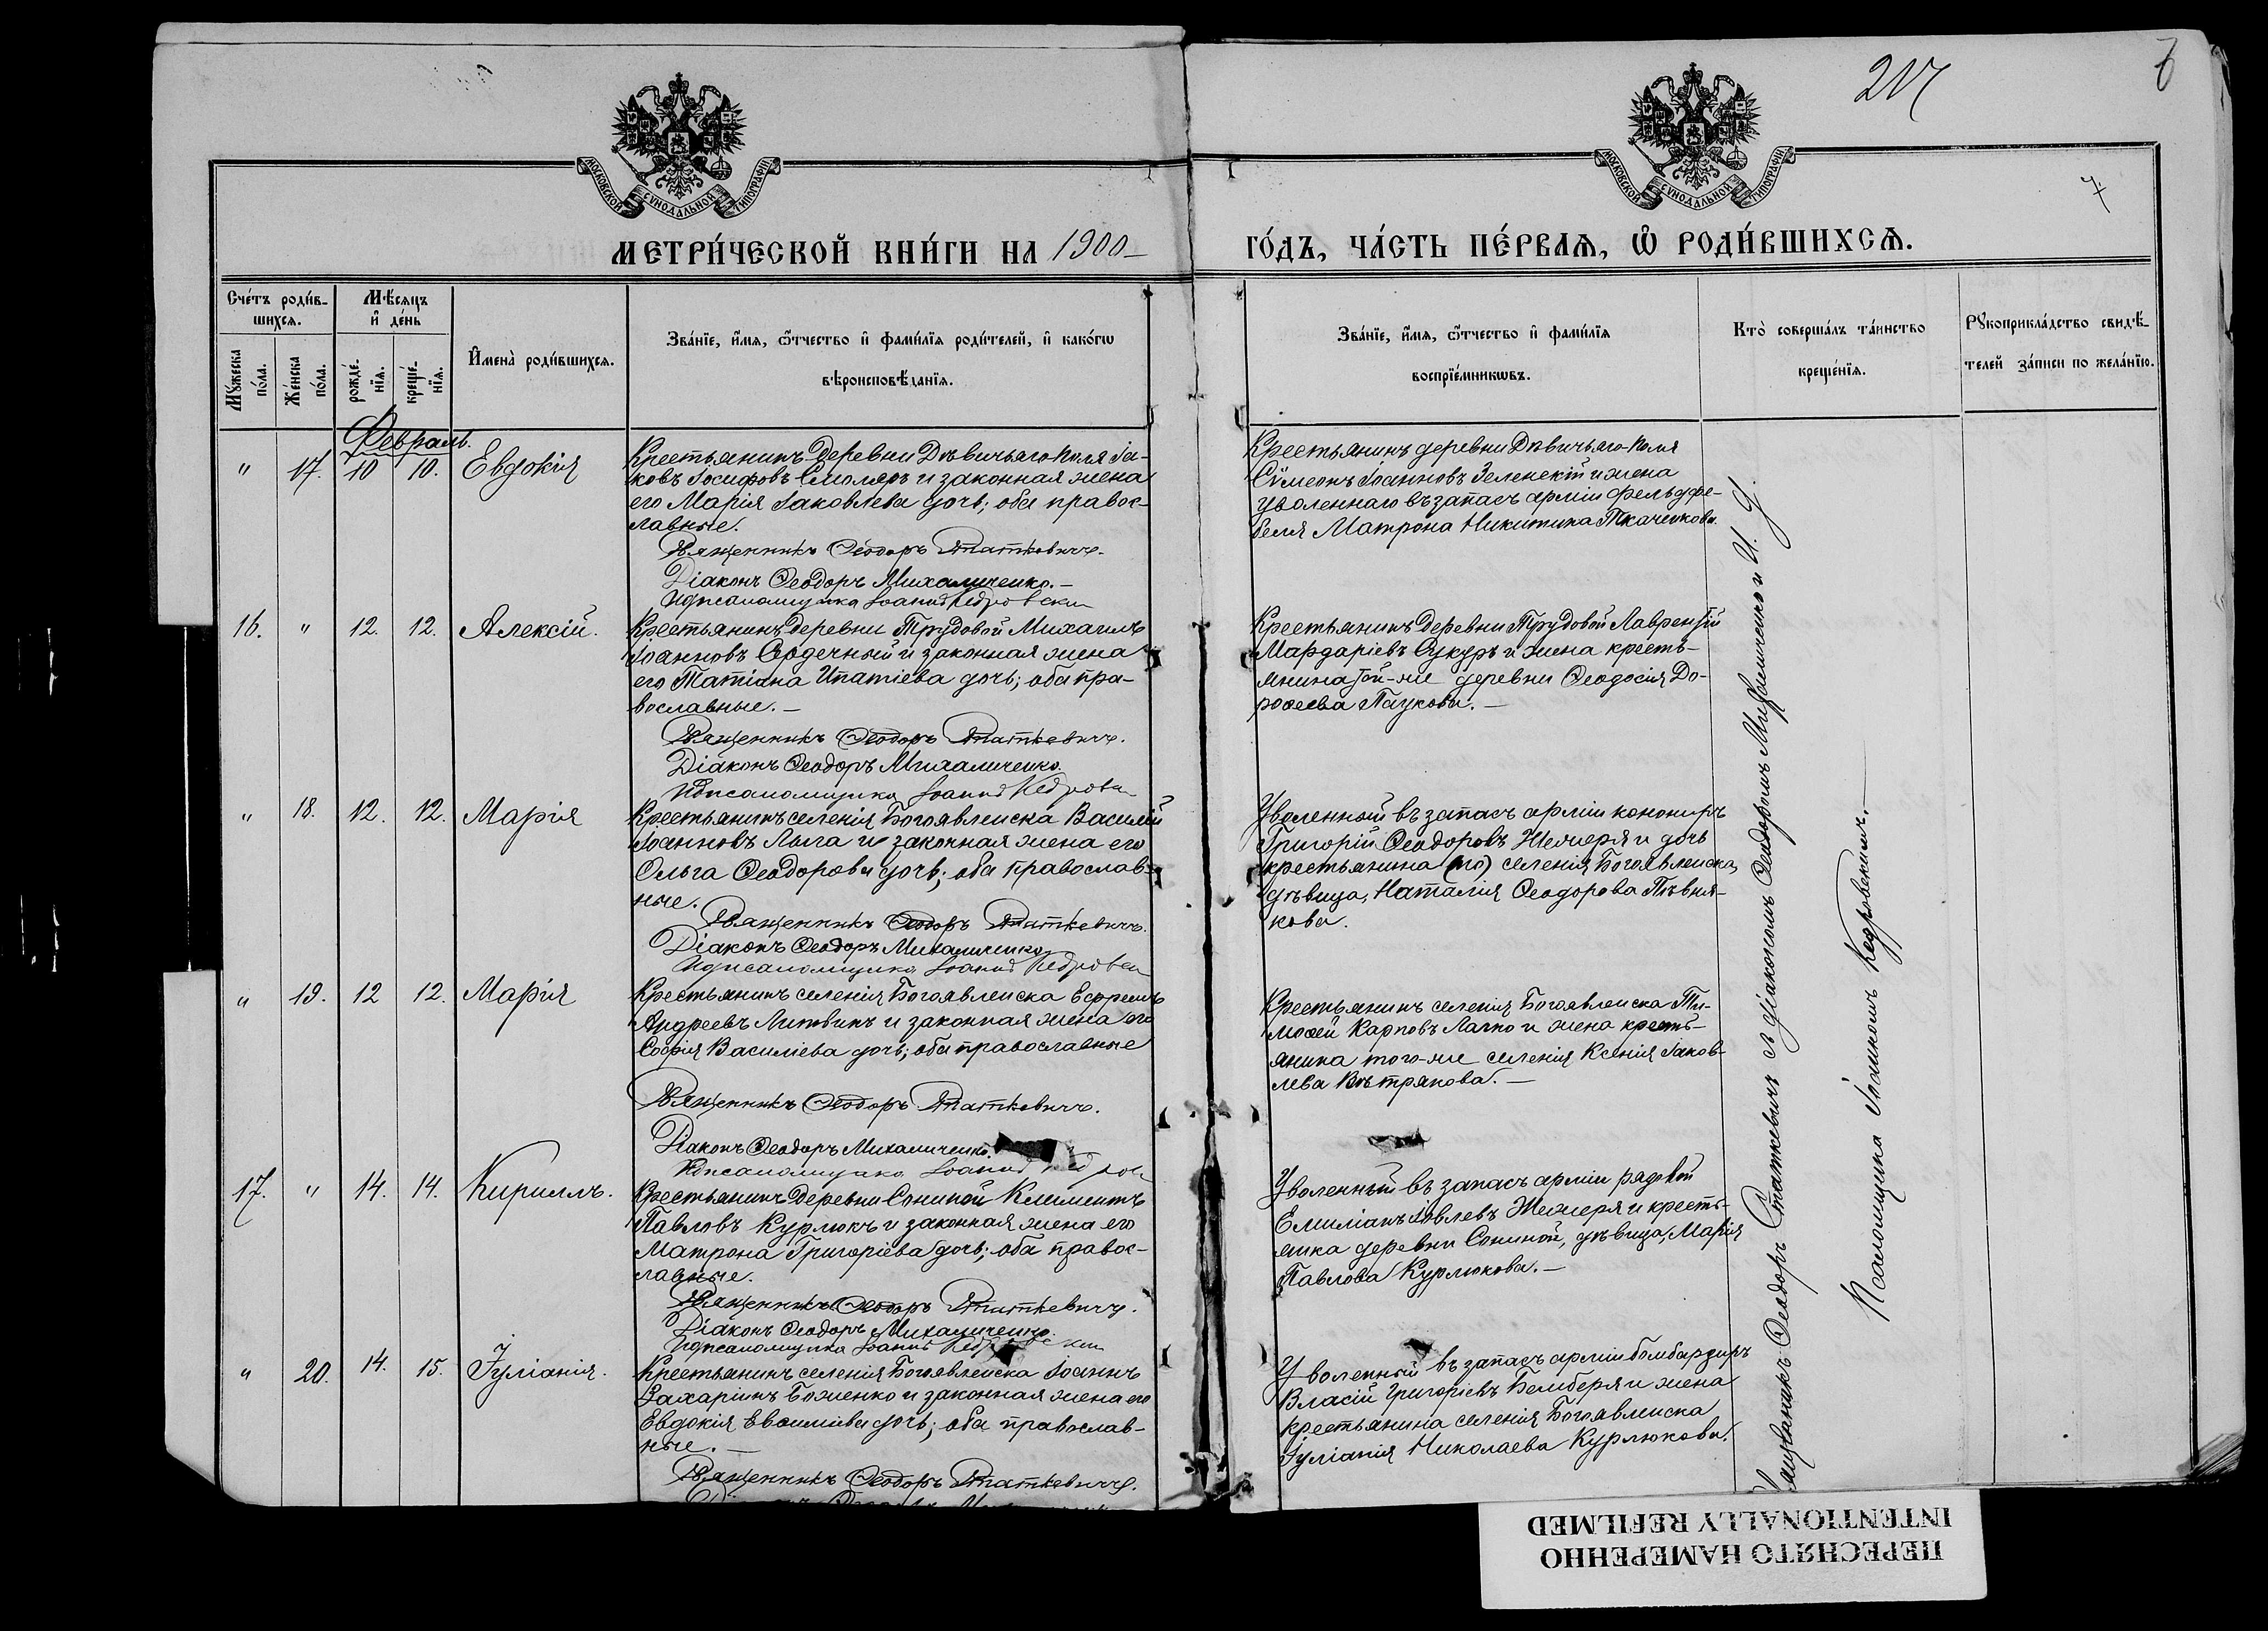 217
7
МОСКОВСКОЙ СУНОДАЛЬНОЙ ТИПОГРАФІИ
МОСКОВСКОЙ СУНОДАЛЬНОЙ ТИПОГРАФІИ
МЕТРИ́ЧЕСКОЙ КНИ́ГИ НА 1900 ГО́ДЪ, ЧА́СТЬ ПЕ́РВАѦ, Ѡ РОДИ́ВШИХСѦ.
Сче́тъ роди́в-
шихсѧ.
Мѣ́сѧцъ
и҆ де́нь
Мꙋ́жеска
по́ла.
Же́нска
по́ла.
рожде́-
нїѧ.
креще́-
нїѧ.
И҆мена̀ роди́вшихсѧ.
Зва́нїе, и҆́мѧ, ѻ҆́тчество и҆ фами́лїѧ роди́телей, и҆ како́гѡ
вѣроисповѣ́данїѧ.
Зва́нїе, и҆́мѧ, ѻ҆́тчество и҆ фами́лїѧ
воспрїе́мникѡвъ.
Кто̀ соверша́лъ та́инство
креще́нїѧ.
Рꙋкоприкла́дство свидѣ́-
телей за́писи по жела́нїю.
Февраль.
" 17. 10 10. Евдокія
Крестьянинъ деревни Дѣвичьяго поля Іа-
ковъ Іосифовъ Смоляръ и законная жена
его Марія Іаковлева дочь; оба правос-
лавные.
Священникъ Ѳеодоръ Статкевичъ.
Діаконъ Ѳеодоръ Михаличенко.—
Псаломщика Іоаннъ Кедровски
Крестьянинъ деревни Дѣвичьяго-поля
Сѵмеонъ Іоанновъ Зеленскій и жена
уволеннаго въ запасъ арміи фельдфе-
беля Матрона Никитина Ткаченкова
16. " 12. 12. Алексій.
Крестьянинъ деревни Трудовой Михаилъ
Іоанновъ Сердечный и законная жена
его Татіана Ипатіева дочь; оба пра-
вославные.—
Священникъ Ѳеодоръ Статкевичъ.
Діаконъ Ѳеодоръ Михаличенко.
Псаломщика Іоаннъ Кедровск
Крестьянинъ деревни Трудовой Лаврентій
Мардаріевъ Сукуръ и жена кресть-
янина той-же деревни Ѳеодосія До-
роѳеева Паукова.—
" 18. 12. 12. Марія
Крестьянинъ селенія Богоявленска Василій
Іоанновъ Лыга и законная жена его
Ольга Ѳеодорова дочь; оба православ-
ные.
Священникъ Ѳеодоръ Статкевичъ.
Діаконъ Ѳеодоръ Михаличенко
Псаломщика Іоаннъ Кедровск
Уволенный въ запасъ арміи канониръ
Григорій Ѳеодоровъ Жемеря и дочь
крестьянина селенія Богоявленска,
дѣвица, Наталія Ѳеодорова Пѣвня-
кова.
" 19. 12 12. Марія
Крестьянинъ селенія Богоявленска Ефремъ
Андреевъ Литвинъ и законная жена его
Софія Василіева дочь; оба православные
Священникъ Ѳеодоръ Статкевичъ.
Діаконъ Ѳеодоръ Михаличенко.
Псаломщика Іоаннъ Кедров
Крестьянинъ селенія Богоявленска Ти-
моѳей Карповъ Лачно и жена кресть-
янина того-же селенія Ксенія Іаков-
лева Вѣтрякова.—
17. " 14. 14. Кириллъ.
Крестьянинъ деревни Сониной Климентъ
Павловъ Курлюкъ и законная жена его
Матрона Григоріева дочь; оба правос-
лавные.
Священникъ Ѳеодоръ Статкевичъ.
Діаконъ Ѳеодоръ Михаличенко.
Псаломщика Іоаннъ Кедровски
Уволенный въ запасъ арміи рядовой
Емиліанъ Іовлевъ Жемеря и кресть-
янка деревни Сониной, дѣвица, Марія
Павлова Курлюкова.—
" 20. 14. 15. Іуліанія.
Крестьянинъ селенія Богоявленска Іоаннъ
Захаріинъ Боженко и законная жена его
Евдокія Евѳиміева дочь; оба православ-
ные.—
Священникъ Ѳеодоръ Статкевичъ.
Уволенный въ запасъ арміи бомбардиръ
Власій Григоріевъ Бемберя и жена
крестьянина селенія Богоявленска
Іуліанія Николаева Курлюкова.
Священникъ Ѳеодоръ Статкевичъ съ діакономъ Ѳеодоромъ Михаличенко и И. д.
Псаломщика Іоанномъ Кедровскимъ.—
ПЕРЕСНЯТО НАМЕРЕННО
INTENTIONALLY REFILMED